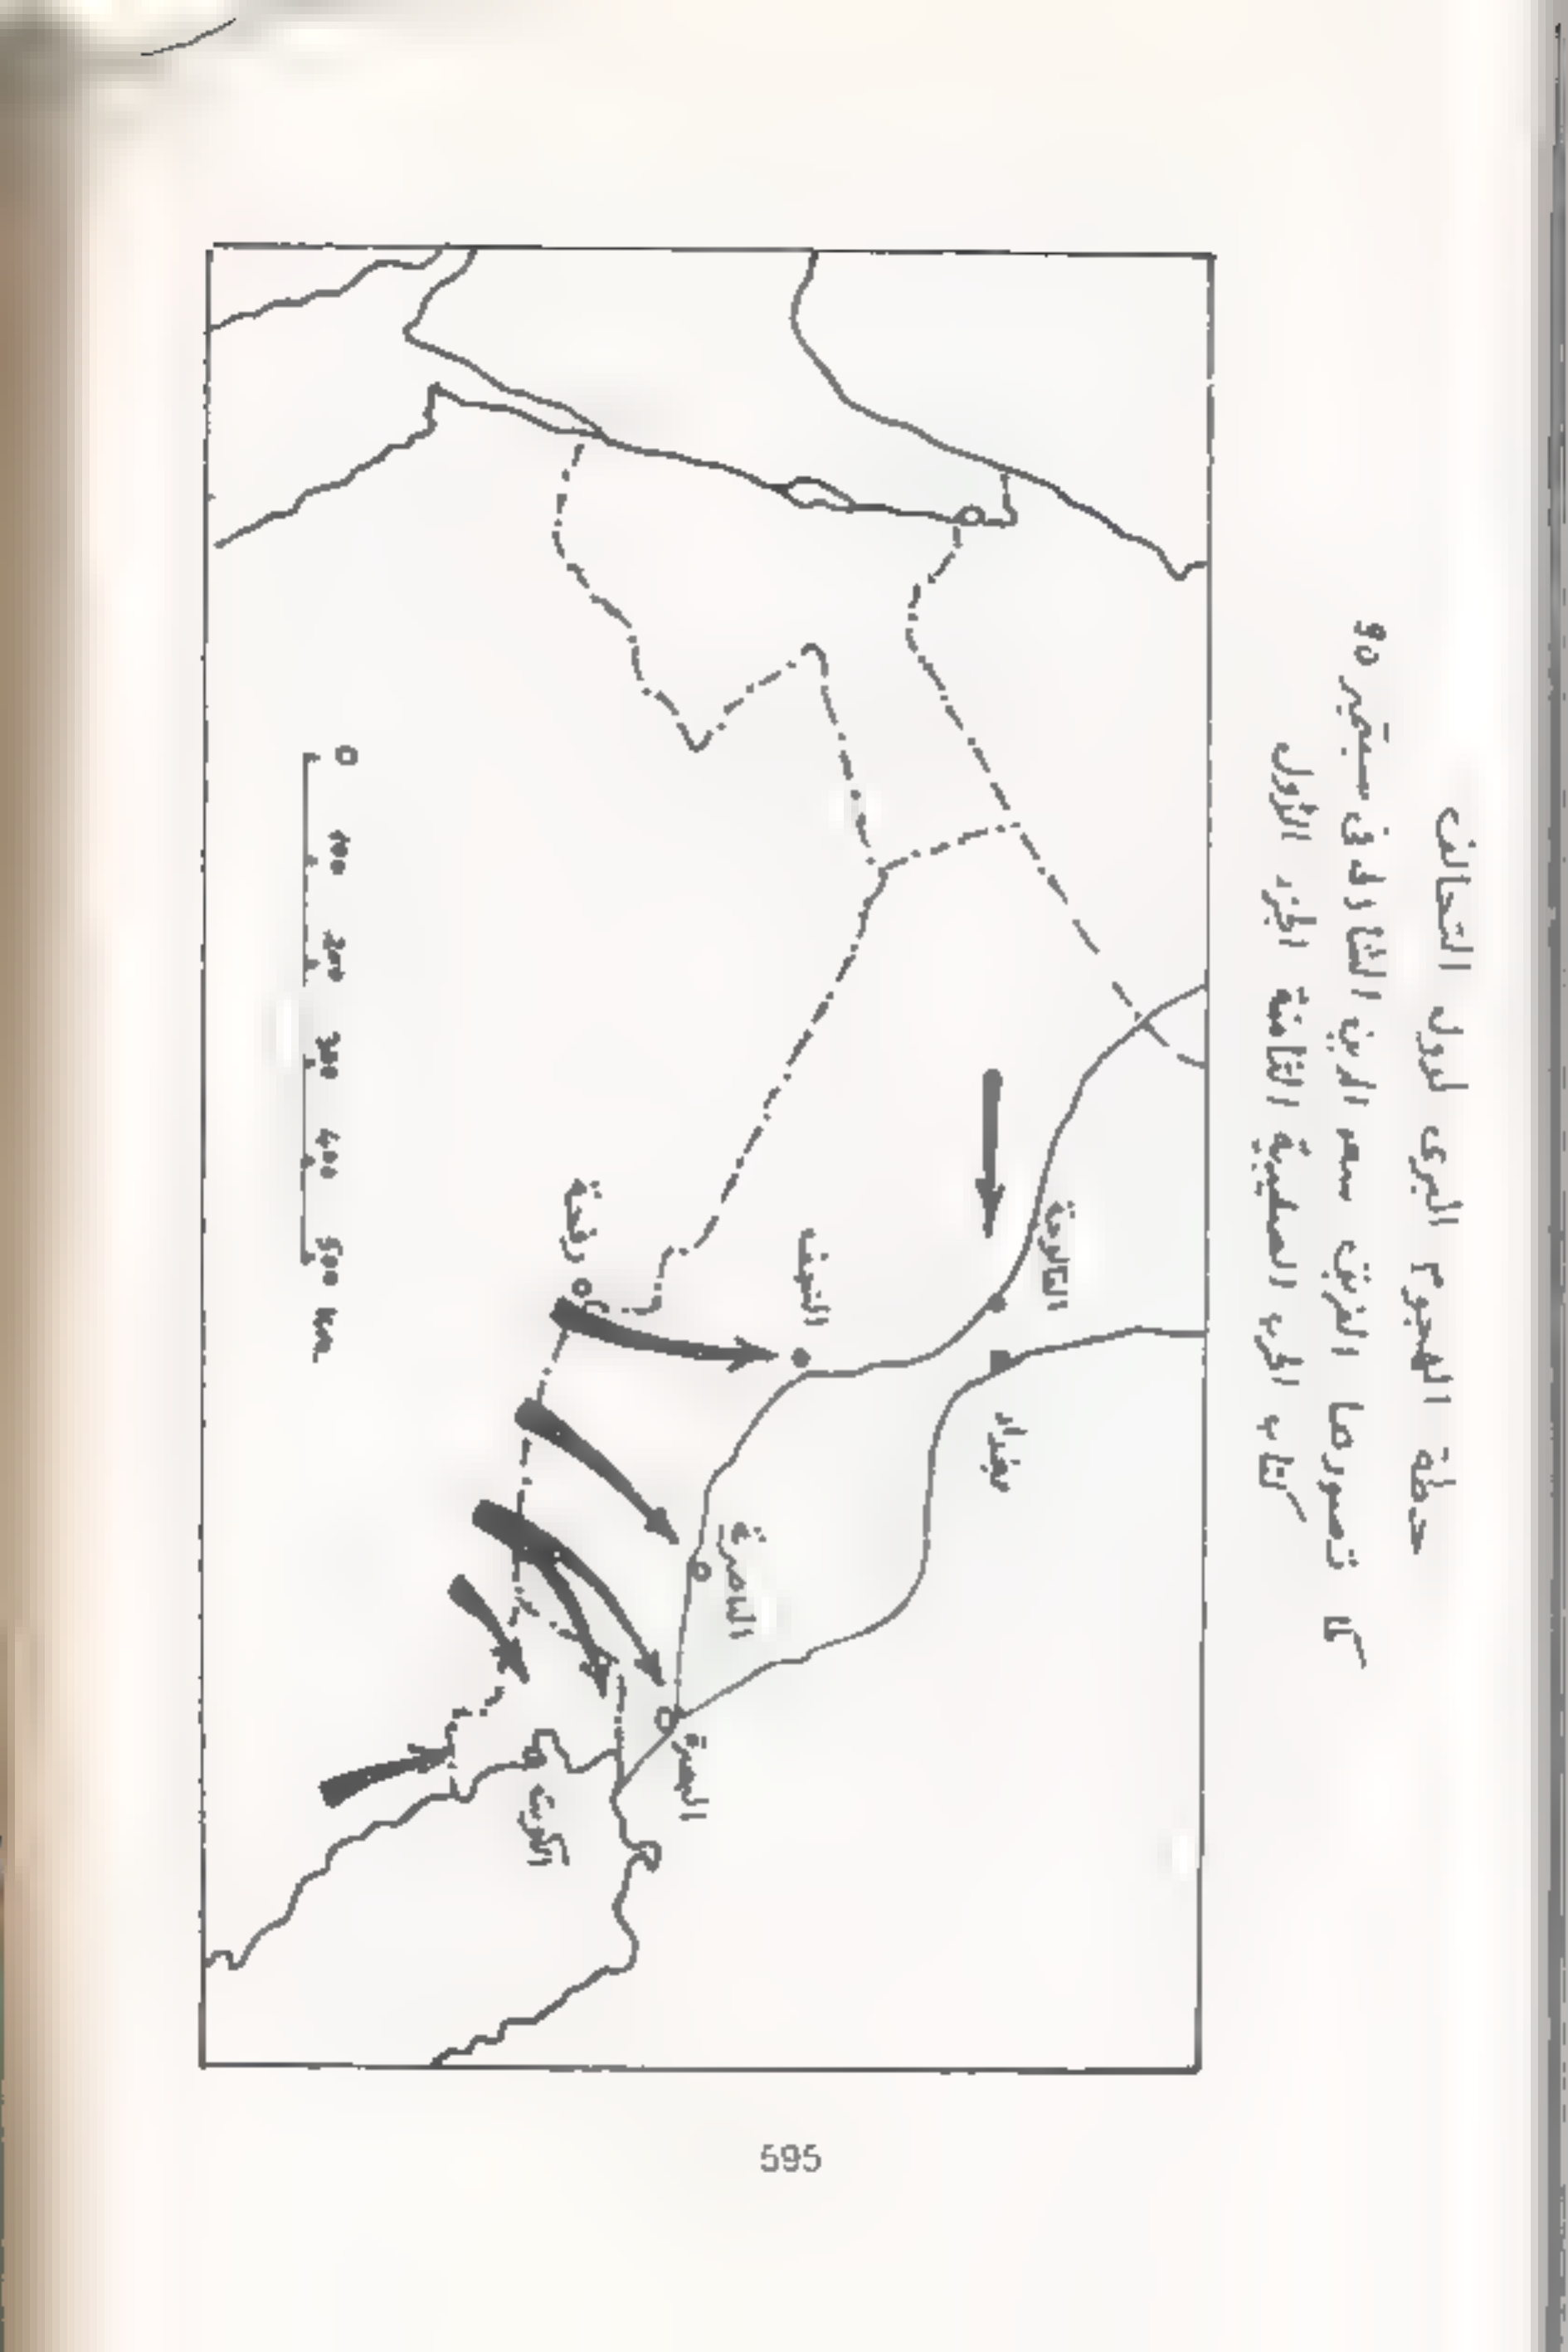 خطة الهجوم البرى لدول التحالف
كما تصورها الفريق سعد الدين الشاذلى فى سبتمبر 90
كتاب الحرب الصليبية الثامنة الجزء الأول
الفالوجة
بغداد
النجف
رفحة
الناصرية
البصرة
الكويت
0 100 200 300 400 500 km
595